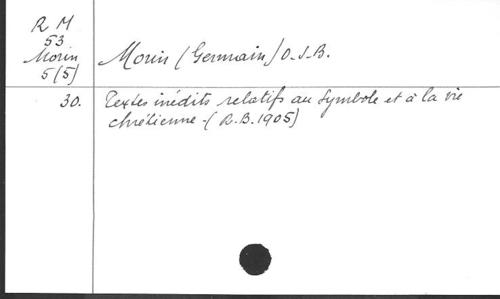 R M
53
Morin
5(5)
Morin (Germain) O.S.B.
30. Textes inédits relatifs au Symbole et à la vie
chrétienne - (R.B. 1905)